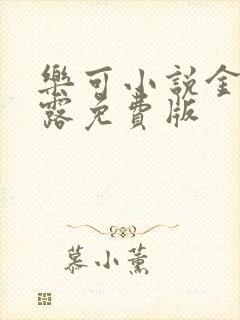 樂可小説金
露免費版
慕小薰